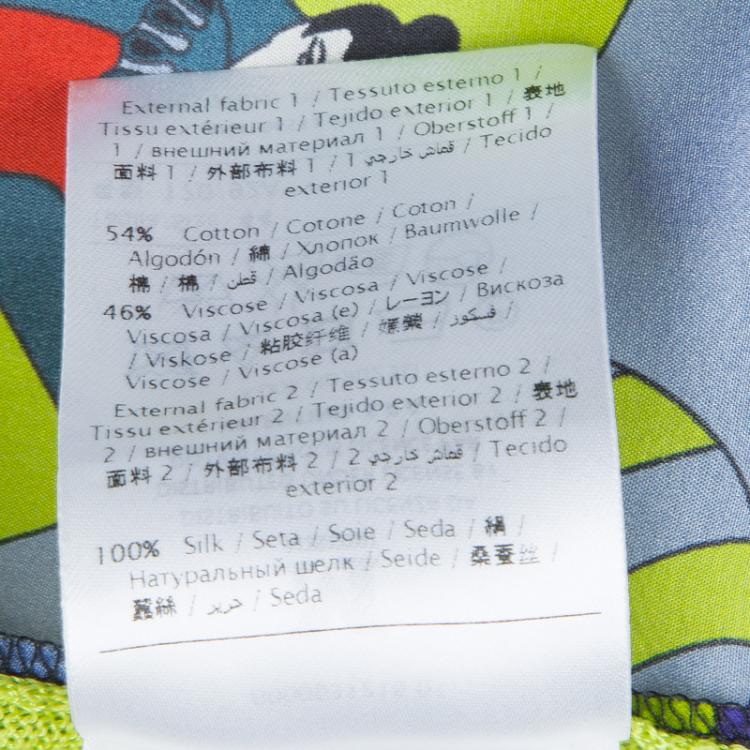 External fabric 1 / Tessuto esterno 1 /
Tissu extérieur 1 / Tejido exterior 1 / 表地
1 / внешний материал 1 / Oberstoff 1 /
面料 1 / 外部布料 1 / 1 قماش خارجي / Tecido
exterior 1
54% Cotton / Cotone / Coton /
Algodón / 綿 / Хлопок / Baumwolle /
棉 / 棉 / قطن / Algodão
46% Viscose / Viscosa / Viscose /
Viscosa / Viscosa (e) / レーヨン / Вискоза
/ Viskose / 粘胶纤维 / 嫘縈 / فسكوز /
Viscose / Viscose (a)
External fabric 2 / Tessuto esterno 2 /
Tissu extérieur 2 / Tejido exterior 2 / 表地
2 / внешний материал 2 / Oberstoff 2 /
面料 2 / 外部布料 2 / 2 قماش خارجي / Tecido
exterior 2
100% Silk / Seta / Soie / Seda / 絹 /
Натуральный шелк / Seide / 桑蚕丝 /
蠶絲 / حرير / Seda